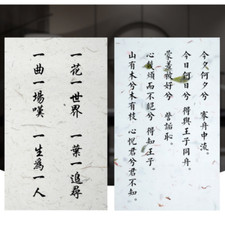 今夕何夕兮 搴舟中流。
今日何日兮 得與王子同舟。
蒙羞被好兮 訾詬恥
心幾煩而不絕兮 得知王子
山有木兮木有枝 心悅君兮君不知
一花一世界 一葉一追尋
一曲一場嘆 一生為一人